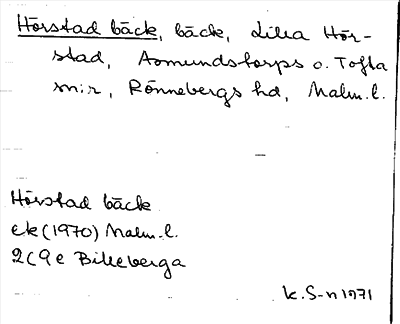 Hörstad bäck, bäck, Lilla Hör-
stad, Asmundstorps o. Tofta
snr, Rönnebergs hd, Malm.l.
Hörstad bäck
ek (1970) Malm.l.
2C 9e Billeberga
K.S-n 1971